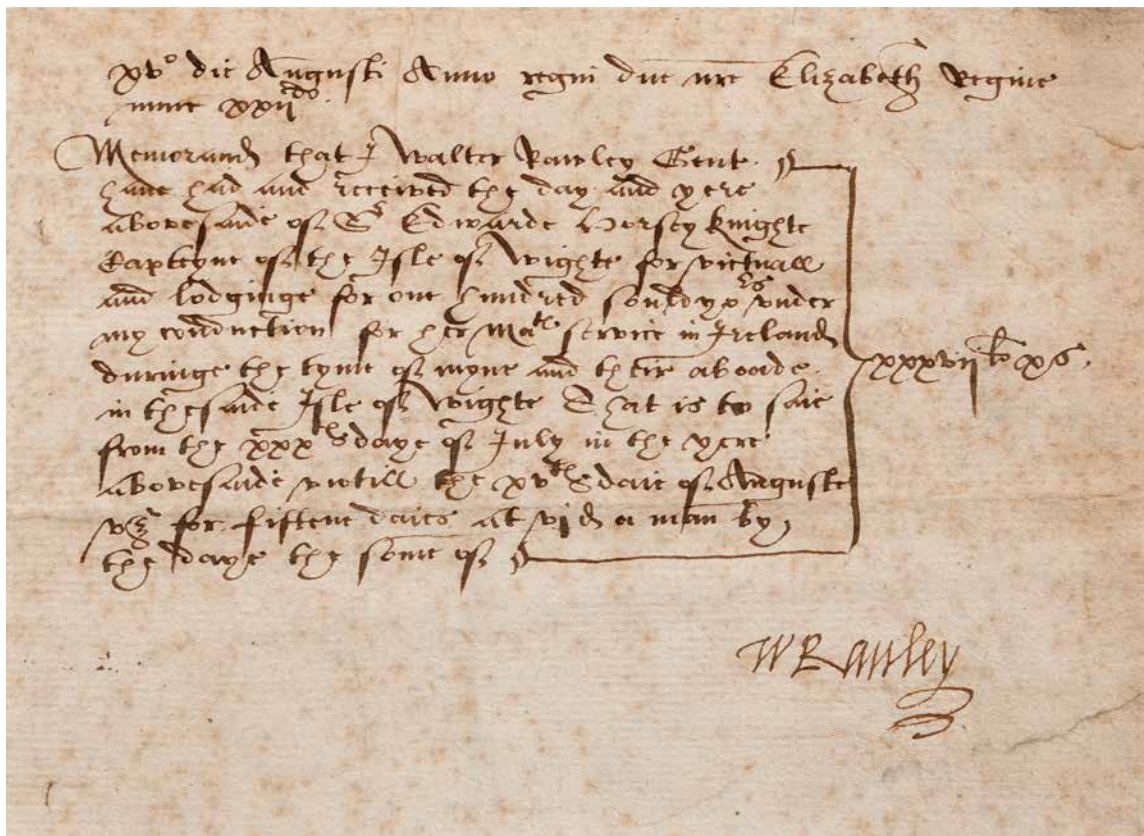 xv° die Augusti Anno regni dne nre Elizabeth Regine
nunc xxijdo.
Memorand that I Walter Rawley Gent.
have had and receivved the day and yere
abovesaide of Sr Edwarde Horsey knighte
Capteyne of the Isle of Wighte for victuall
and lodginge for one hundred souldyors under
my conduction for her Mats service in Ireland
duringe the tyme of myne and their aboade
in thesaide Isle of Wighte That is to saie
from the xxxth daye of July in the yere
abovesaide untill the xvth daie of Auguste
vz for fiftene daies at vjd a man by
the daye the some of
xxxvijli xs.
W Rauley